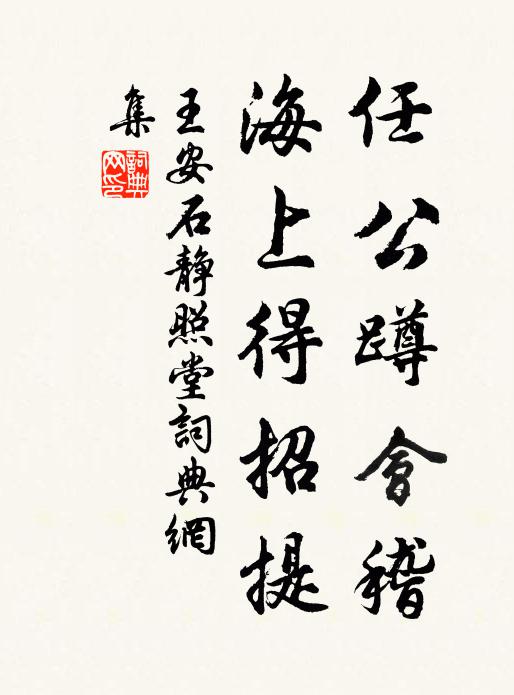 任公蹲會稽
海上得招提
王安石靜照堂詞典網
集
詞典
网印